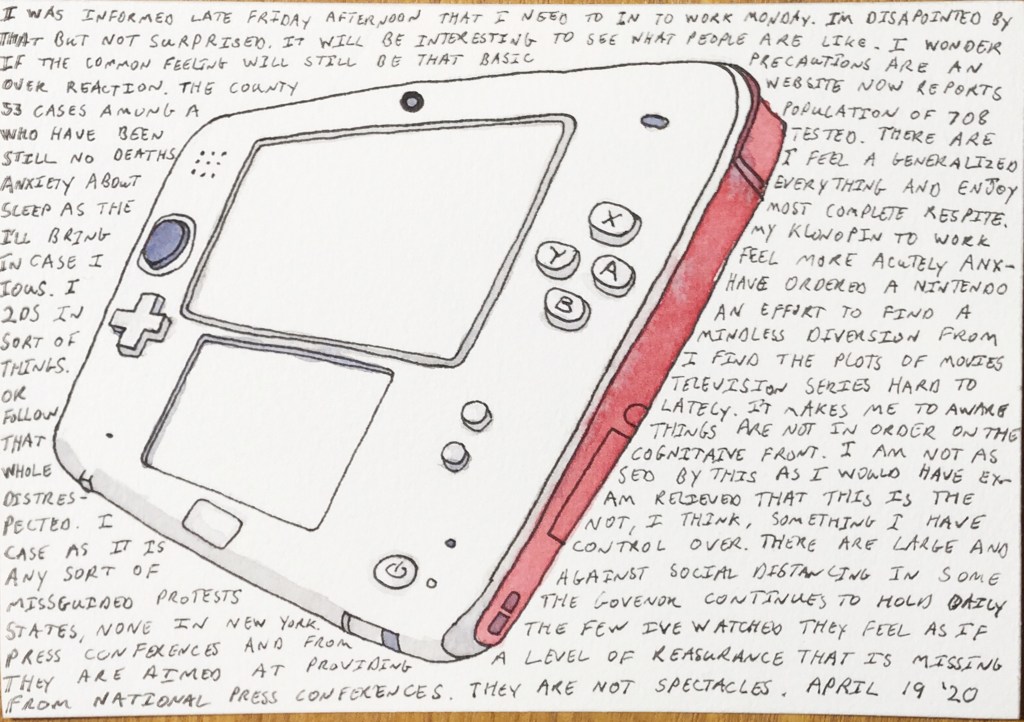 I WAS INFORMED LATE FRIDAY AFTERNOON THAT I NEED TO IN TO WORK MONDAY. I'M DISAPOINTED BY
THAT BUT NOT SURPRISED. IT WILL BE INTERESTING TO SEE WHAT PEOPLE ARE LIKE. I WONDER
IF THE COMMON FEELING WILL STILL BE THAT BASIC PRECAUTIONS ARE AN
OVER REACTION. THE COUNTY WEBSITE NOW REPORTS
53 CASES AMUNG A POPULATION OF 708
WHO HAVE BEEN TESTED. THERE ARE
STILL NO DEATHS. I FEEL A GENERALIZED
ANXIETY ABOUT EVERYTHING AND ENJOY
SLEEP AS THE MOST COMPLETE RESPITE.
I'LL BRING MY KLONOPIN TO WORK
IN CASE I FEEL MORE ACUTELY ANX-
IOUS. I HAVE ORDERED A NINTENDO
2DS IN AN EFFORT TO FIND A
SORT OF MINDLESS DIVERSION FROM
THINGS. I FIND THE PLOTS OF MOVIES
OR TELEVISION SERIES HARD TO
FOLLOW LATELY. IT MAKES ME TO AWARE
THAT THINGS ARE NOT IN ORDER ON THE
WHOLE COGNITAIVE FRONT. I AM NOT AS
DISTRES- SED BY THIS AS I WOULD HAVE EX-
PECTED. I AM RELIEVED THAT THIS IS THE
CASE AS IT IS NOT, I THINK, SOMETHING I HAVE
ANY SORT OF CONTROL OVER. THERE ARE LARGE AND
MISSGUIDED PROTESTS AGAINST SOCIAL DISTANCING IN SOME
STATES, NONE IN NEW YORK. THE GOVENOR CONTINUES TO HOLD DAILY
PRESS CONFERENCES AND FROM THE FEW IVE WATCHED THEY FEEL AS IF
THEY ARE AIMED AT PROVIDING A LEVEL OF REASURANCE THAT IS MISSING
FROM NATIONAL PRESS CONFERENCES. THEY ARE NOT SPECTACLES. APRIL 19 '20
X
Y
A
B